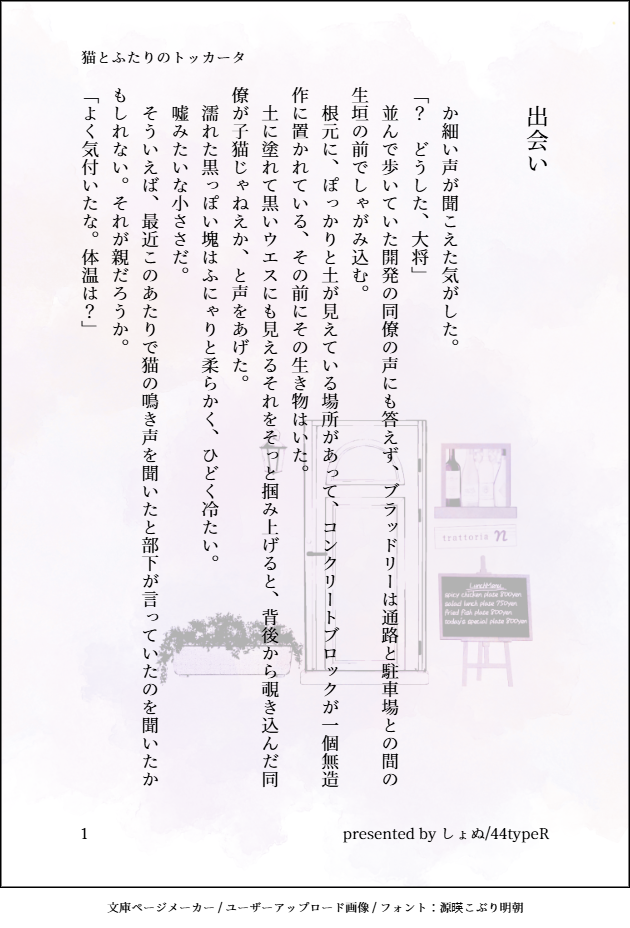 猫とふたりのトッカータ
出会い
　か細い声が聞こえた気がした。
「？　どうした、大将」
　並んで歩いていた開発の同僚の声にも答えず、ブラッドリーは通路と駐車場との間の
生垣の前でしゃがみ込む。
　根元に、ぽっかりと土が見えている場所があって、コンクリートブロックが一個無造
作に置かれている、その前にその生き物はいた。
　土に塗れて黒いウエスにも見えるそれをそっと掴み上げると、背後から覗き込んだ同
僚が子猫じゃねえか、と声をあげた。
　濡れた黒っぽい塊はふにゃりと柔らかく、ひどく冷たい。
　嘘みたいな小ささだ。
　そういえば、最近このあたりで猫の鳴き声を聞いたと部下が言っていたのを聞いたか
もしれない。それが親だろうか。
「よく気付いたな。体温は？」
trattoria n
LunchMenu
spicy chicken plate 800yen
salad lunch plate 750yen
Fried Fish plate 800yen
today's special plate 800yen
1
presented by しょぬ/44typeR
文庫ページメーカー / ユーザーアップロード画像 / フォント：源暎こぶり明朝